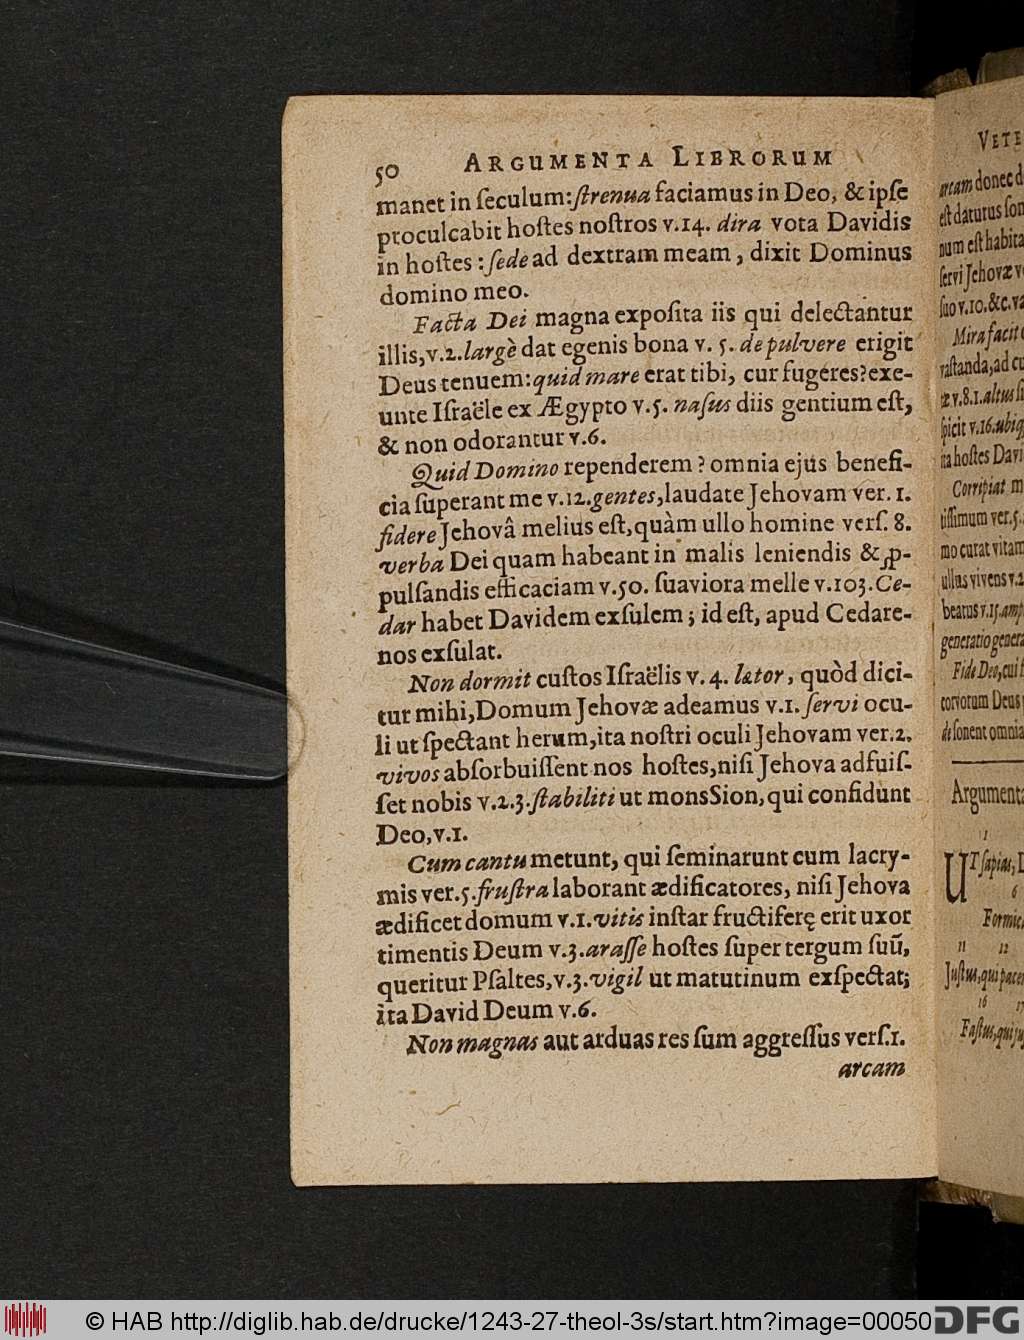 50 ARGUMENTA LIBRORUM
manet in ſeculum: ſtrenua faciamus in Deo, & ipſe
proculcabit hoſtes noſtros v.14. dira vota Davidis
in hoſtes: ſede ad dextram meam, dixit Dominus
domino meo.
Facta Dei magna expoſita iis qui delectantur
illis, v.2. largè dat egenis bona v. 5. de pulvere erigit
Deus tenuem: quid mare erat tibi, cur fugeres? exe-
unte Iſraële ex Ægypto v.5. naſus diis gentium eſt,
& non odorantur v.6.
Quid Domino rependerem? omnia ejus benefi-
cia ſuperant me v.12. gentes, laudate Jehovam ver. 1.
fidere Jehovâ melius eſt, quàm ullo homine verſ. 8.
verba Dei quam habeant in malis leniendis & ꝓ-
pulſandis efficaciam v.50. ſuaviora melle v.103. Ce-
dar habet Davidem exſulem; id eſt, apud Cedare-
nos exſulat.
Non dormit cuſtos Iſraëlis v. 4. lætor, quòd dici-
tur mihi, Domum Jehovæ adeamus v.1. ſervi ocu-
li ut ſpectant herum, ita noſtri oculi Jehovam ver.2.
vivos abſorbuiſſent nos hoſtes, niſi Jehova adfuiſ-
ſet nobis v.2.3. ſtabiliti ut mons Sion, qui confidunt
Deo, v.1.
Cum cantu metunt, qui ſeminarunt cum lacry-
mis ver.5. fruſtra laborant ædificatores, niſi Jehova
ædificet domum v.1. vitis inſtar fructiferę erit uxor
timentis Deum v.3. araſſe hoſtes ſuper tergum ſuū,
queritur Pſaltes, v.3. vigil ut matutinum exſpectat;
ita David Deum v.6.
Non magnas aut arduas res ſum aggreſſus verſ.1.
arcam
VETE
arcam donec d
eſt daturus ſon
num eſt habita
ſervi Jehovæ v
ſuo v.10. &c. va
Mira facit
vaſtanda, ad cu
æ v.8.1. altus ſi
ſpicit v.16. ubiq
ita hoſtes Davi
Corripiat m
tiſſimum ver.5.
mo curat vitam
ullus vivens v.2
beatus v.15. amp
generatio genera
Fide Deo, cui
corvorum Deus
de ſonent omnia
Argumenta
1
UT ſapias,
6
Formic
11 12
Juſtus, qui pacem
16
Faſtus, qui ju
© HAB http://diglib.hab.de/drucke/1243-27-theol-3s/start.htm?image=00050
DFG